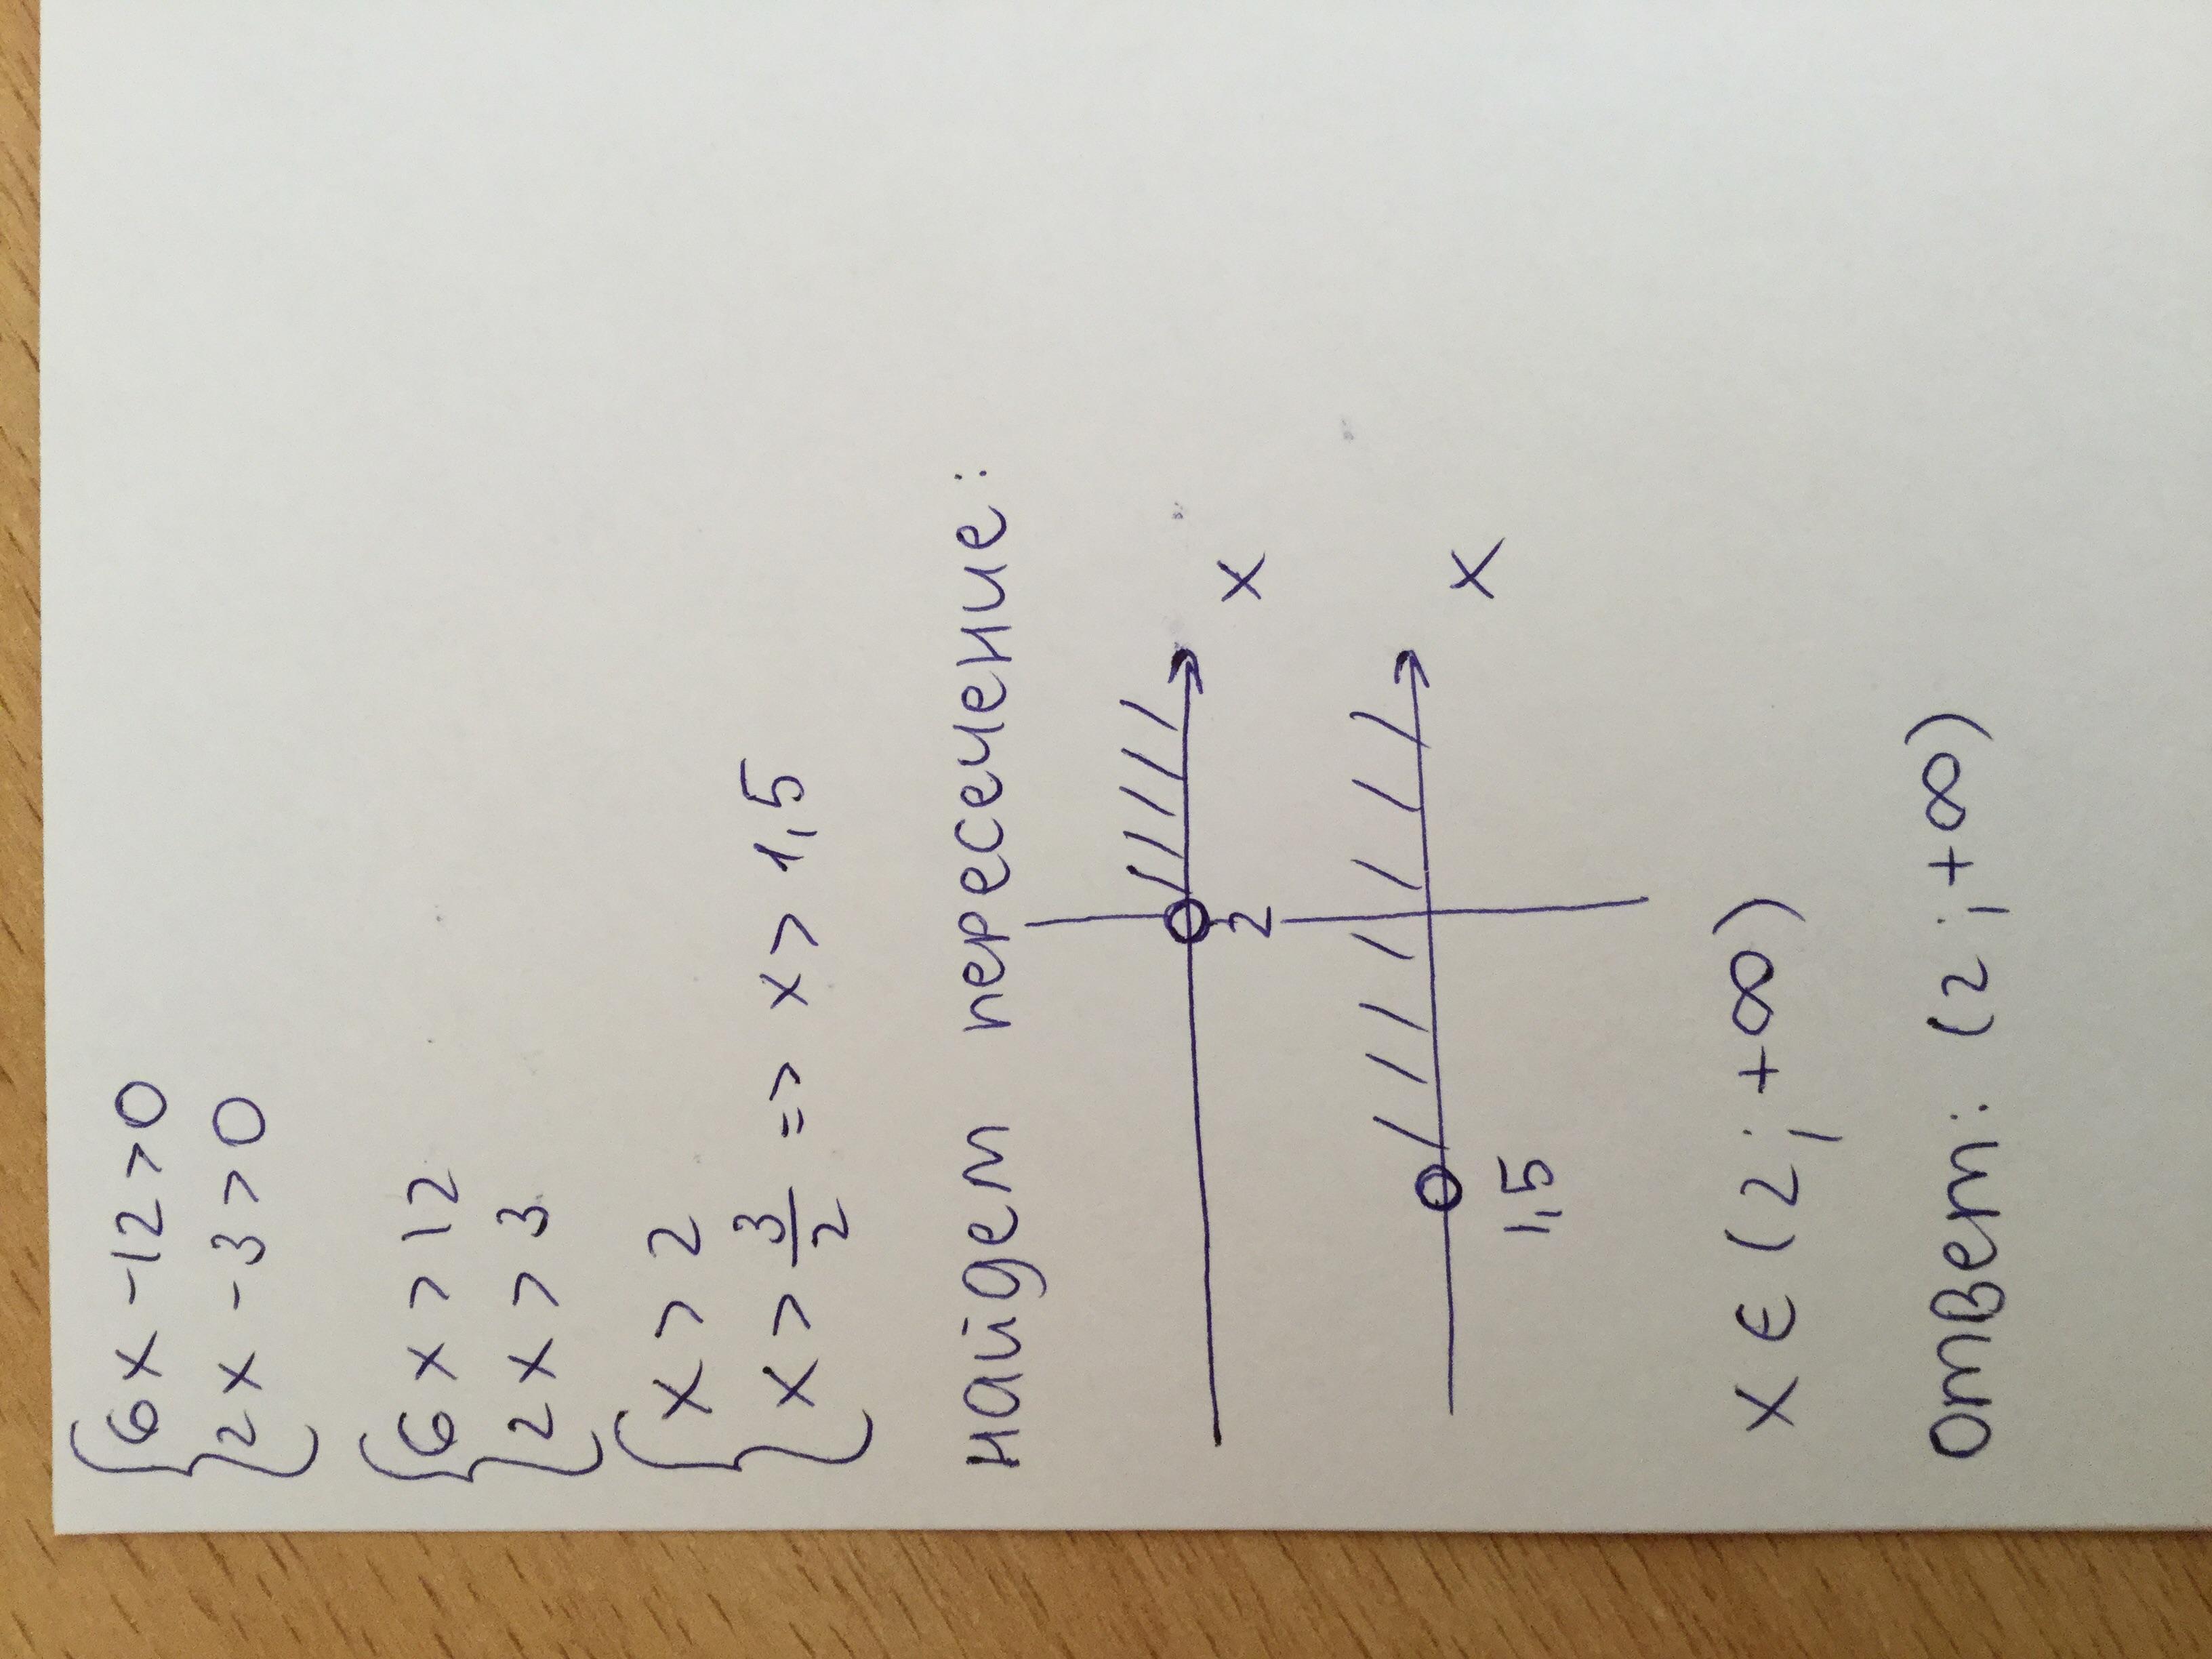 {6x-12>0
{2x-3>0
{6x>12
{2x>3
{x>2
{x>3/2 => x>1,5
найдем пересечение:
2
x
1,5
x
x ∈ (2; +∞)
ответ: (2; +∞)